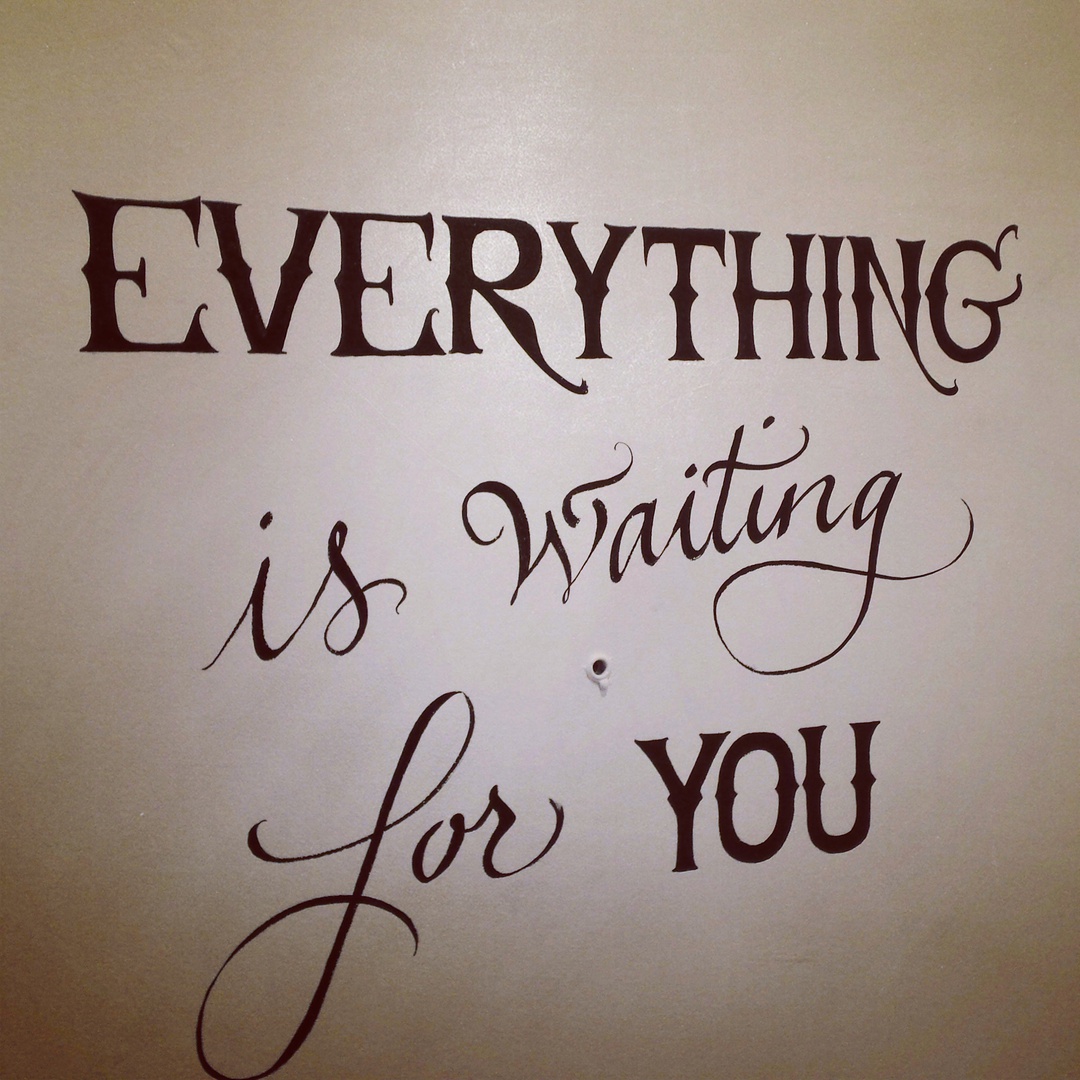 EVERYTHING
is Waiting
for YOU